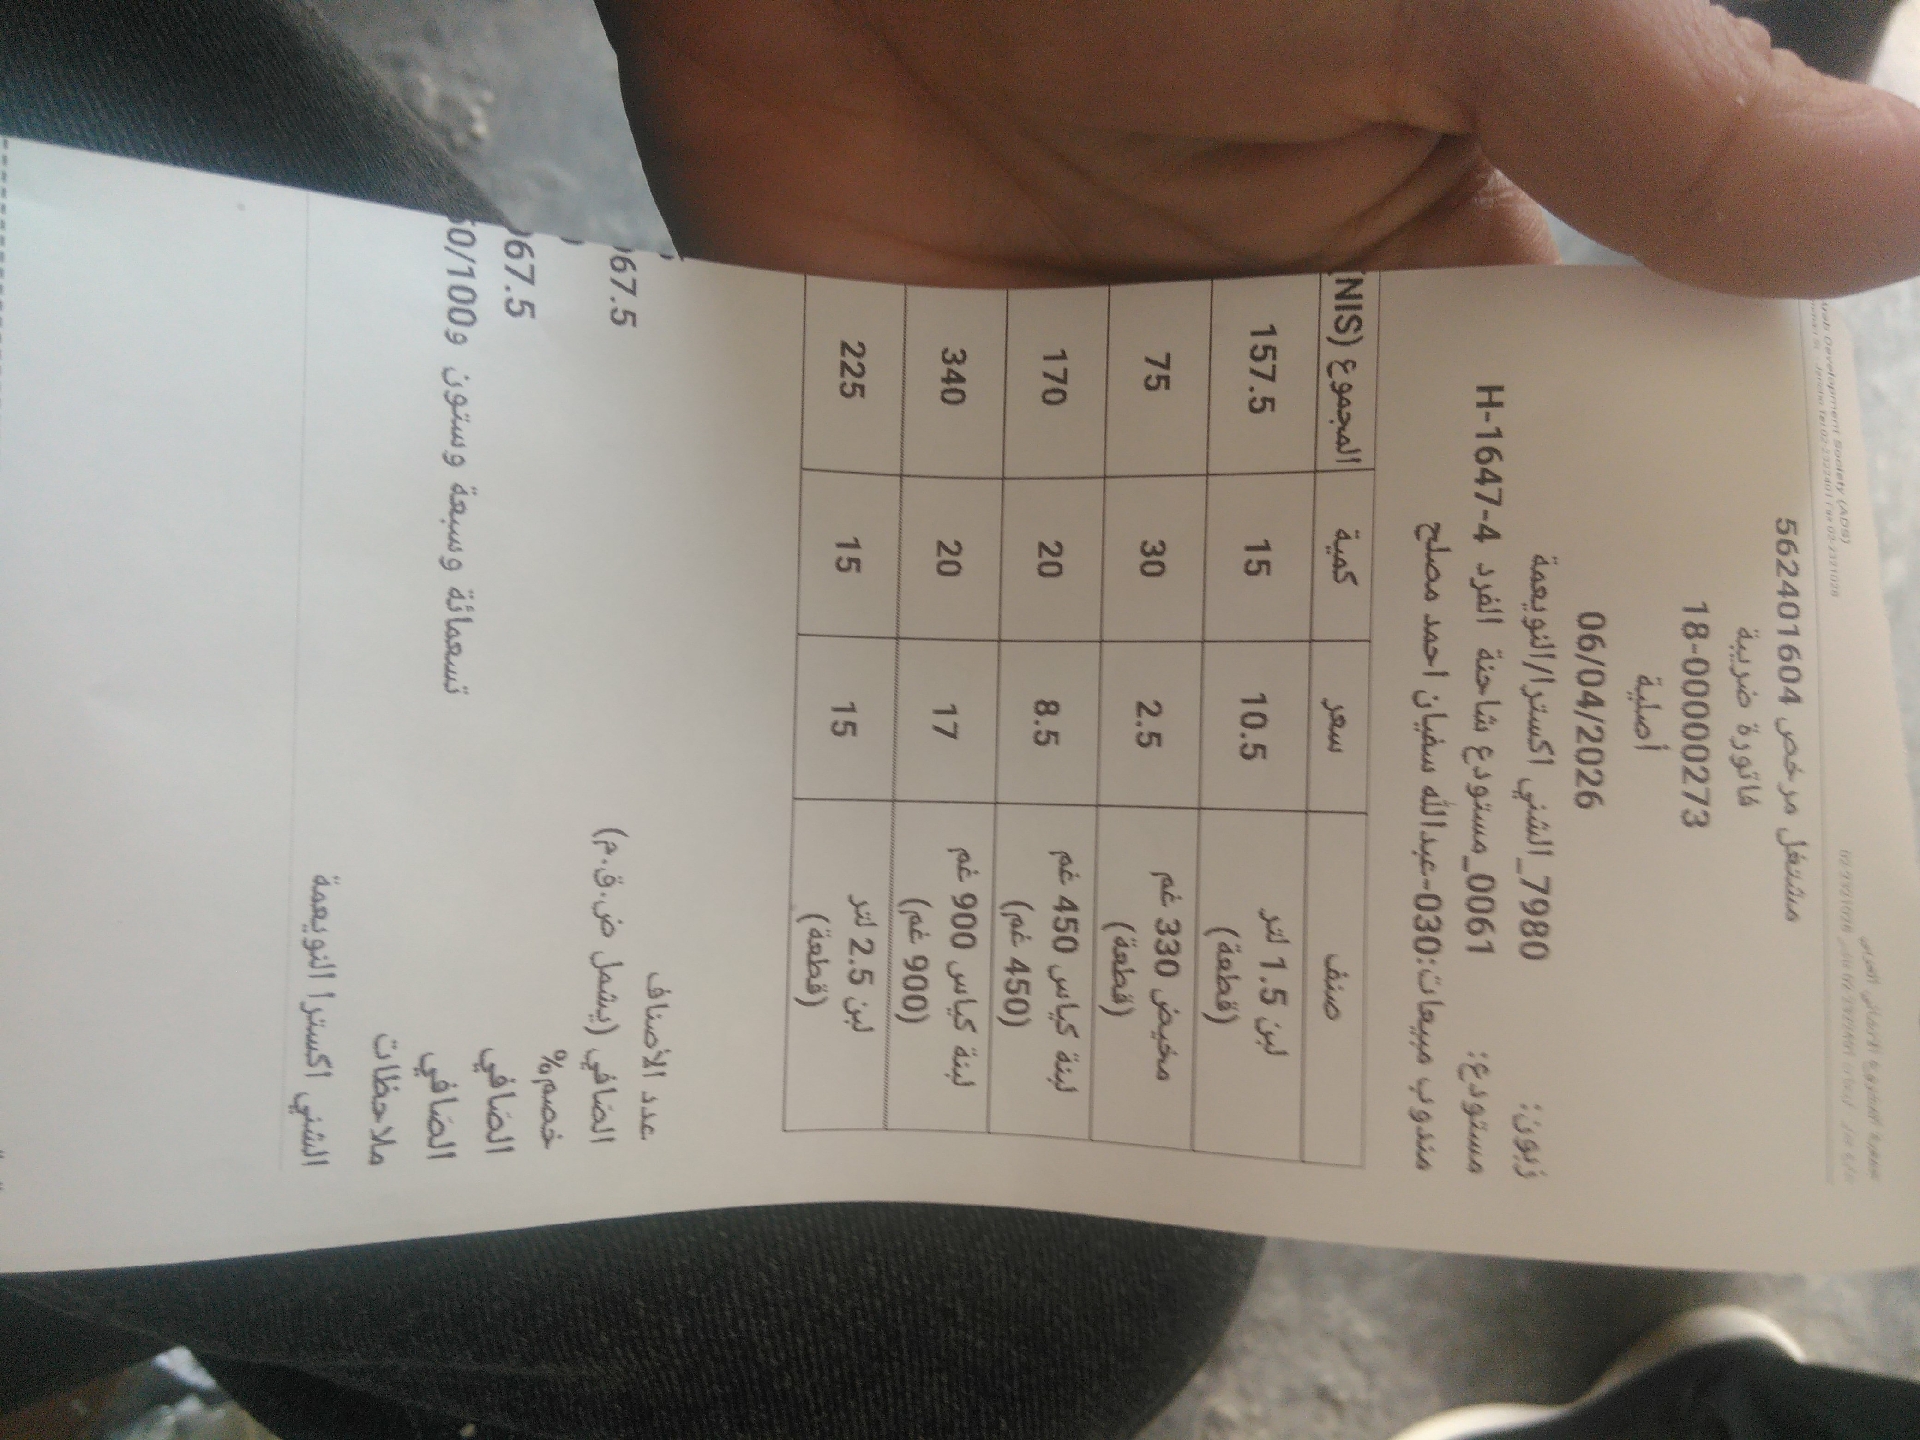 مشتغل مرخص 562401604
فاتورة ضريبة
18-00000273
أصلية
06/04/2026
زبون: 7980_الشني اكسترا/النويعمة
مستودع: 0061_مستودع شاحنة الفرد H-1647-4
مندوب مبيعات:030-عبدالله سفيان احمد مصلح
صنف سعر كمية المجموع (NIS
لبن 1.5 لتر (قطعة) 10.5 15 157.5
مخيض 330 غم (قطعة) 2.5 30 75
لبنة كياس 450 غم (450 غم) 8.5 20 170
لبنة كياس 900 غم (900 غم) 17 20 340
لبن 2.5 لتر (قطعة) 15 15 225
عدد الأصناف
الصافي (يشمل ض.ق.م) 67.5
خصم%
الصافي 67.5
الصافي تسعمائة وسبعة وستون و50/100
ملاحظات
الشني اكسترا النويعمة